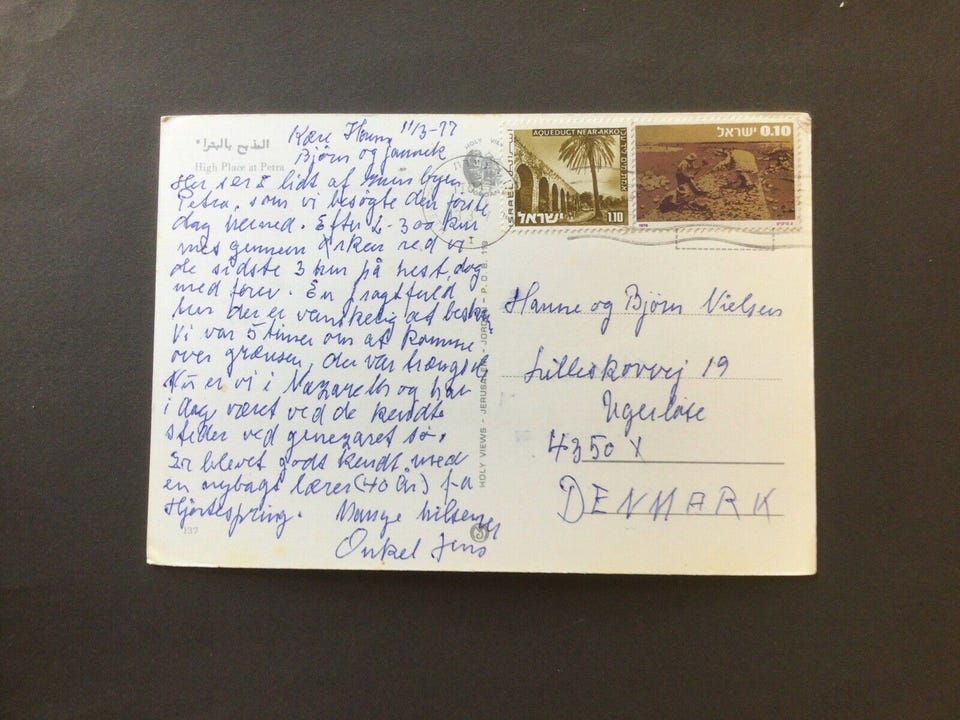 المذبح بالبتراء
High Place at Petra
11/3-77
Kære Hanne
Bjørn og Jannick
Her ser I lidt af byen
Petra, som vi besøgte den første
dag herned. Efter 2-300 km
gennem ørken red vi
de sidste 3 km på hest, dog
med fører. En pragtfuld
der er vanskelig at
Vi var 5 timer om at komme
over grænsen, der var
Nu er vi i Nazareth og har
i dag været ved de kendte
steder ved genezaret sø.
Er blevet godt kendt med
en nybagt lærer (40 år) fra
Hjortespring. Mange hilsener
Onkel Jens
137
HOLY VIEWS - JERUSALEM - JORDAN - P.O.B.
HOLY
AQUEDUCT NEAR AKKO
ISRAEL
ישראל
1.10
ישראל 0.10
1976
Hanne og Bjørn Nielsen
Lilleskovvej 19
Ugerløse
4350 X
DENMARK